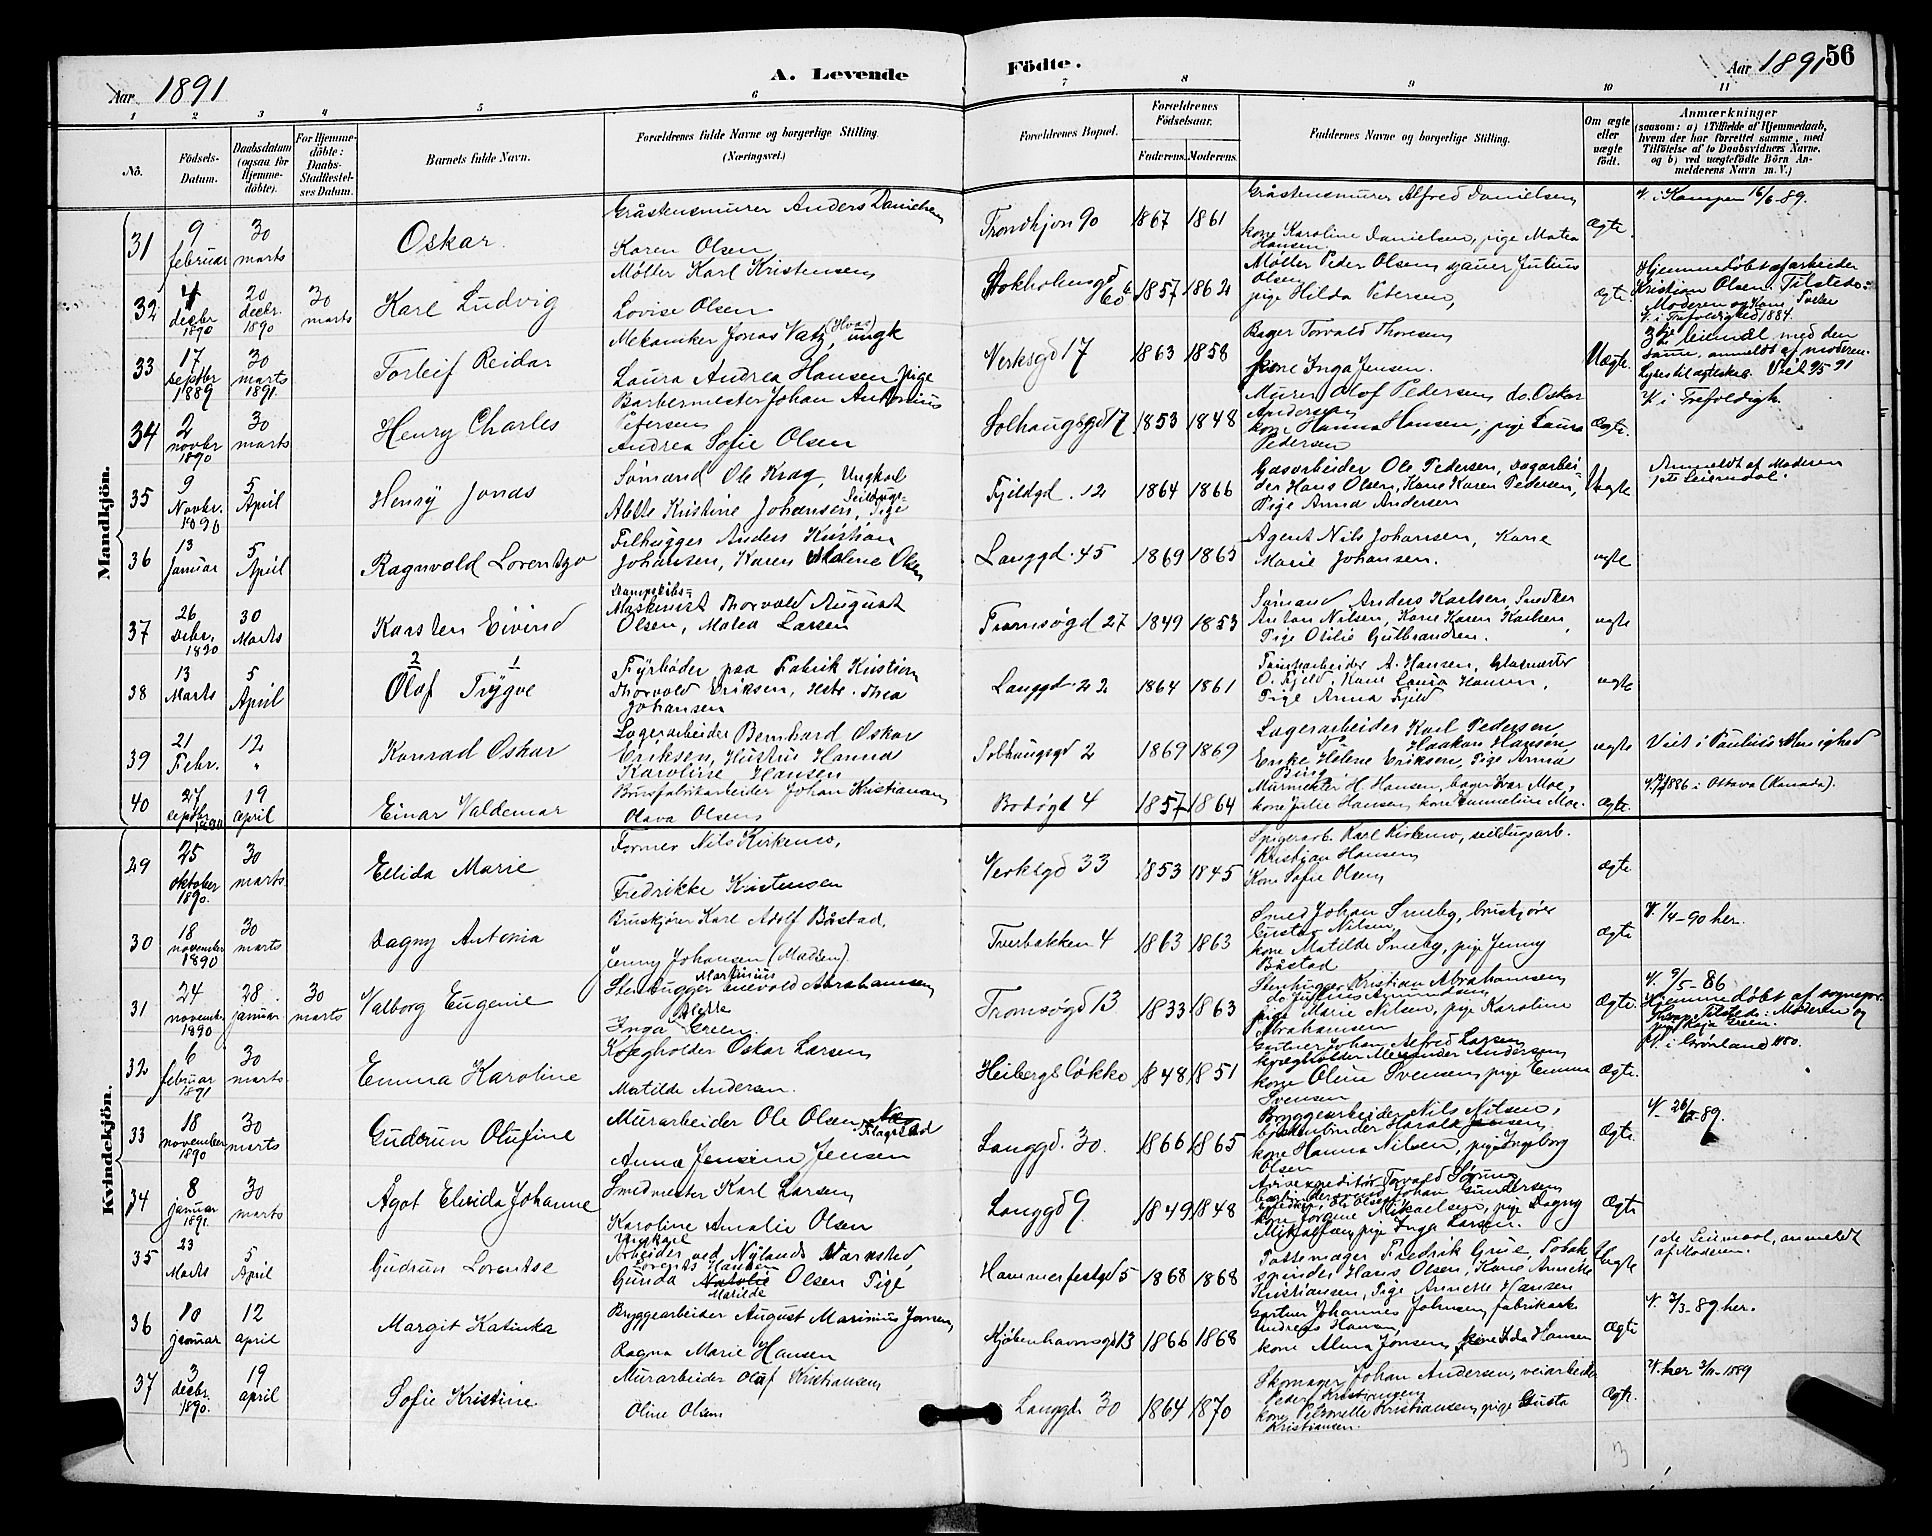 Aar 1891
A. Levende
Födte.
Aar 1891
56
1 2 3 4 5 6 7 8 9 10 11
No.
Födsels-Datum.
Daabsdatum (ogsaa for Hjemme-döbte).
For Hjemme-döbte: Daabs-Stadfæstel-ses Datum.
Barnets fulde Navn.
Forældrenes fulde Navne og borgerlige Stilling.
(Næringsvei.)
Forældrenes Bopæl.
Forældrenes Födselsaar.
Faderens. Moderens.
Faddernes Navne og borgerlige Stilling.
Om ægte eller uægte födt.
Anmærkninger
(saasom: a) i Tilfælde af Hjemmedaab,
hvem der har forrettet samme, med
Tilföielse af to Daabsvidners Navne.
og b) ved uægtefödte Börn An-
melderens Navn m. V.)
Mandkjön.
31
9 februar
30 marts
Oskar
Gråstensmurer Anders Danielsen
Karen Olsen
Trondhjgd 90
1867 1861
Gråstensmurer Alfred Danielsen
kone Karoline Danielsen, pige Matea
Hansen
Ægte.
V. i Kampen 16/6 89.
32
4 decbr 1890
20 decbr. 1890
30 marts
Karl Ludvig
Møller Karl Kristensen
Lovise Olsen
1857 1862
Møller Peder Olsen, Julius
Olsen
pige Hilda Petersen,
ægte.
Hjemmedøbt af arbeider
Kristian Olsen. Tilstede:
Moderen og Kone
V. i Trefoldighed 1884.
33
17 septbr 1889
30 marts 1891
Torleif Reidar
Mekaniker Jonas Vatz, ungk
Laura Andrea Hansen pige
Verksgd 17
1863 1858
Bager Torvald Thoresen
kone Inga Jensen.
Uægte.
leiermål med den
samme, anmeldt af moderen.
34
2 novbr 1890
30 marts
Henry Charles
Barbermester Johan Antonius
Petersen
Andrea Sofie Olsen
Solhaugsgd 17
1853 1848
Murer Olof Pedersen, do. Oskar
Andersen
kone Hanna Hansen, pige Laura
Pedersen
Ægte.
V. i Trefoldigh.
35
9 Novbr. 1890
5 April
Henry Jonas
Sømand Ole Krag, Ungkarl
Alette Kristine Johansen, Pige
Fjeldgd. 12
1864 1866
Gasarbeider Ole Pedersen, Dagarbei-
der Hans Olsen, Kone Karen Pedersen,
Pige Anna Andersen
Uægte
Anmeldt af Moderen
1ste Leiermaal.
36
13 Januar
5 April
Ragnvald Lorentzo
Filhugger Anders Kristian
Johansen, Karen Helene Olsen
Langgd. 45
1869 1865
Agent Nils Johansen, Kone
Marie Johansen.
ægte
37
26 Decbr. 1890
30 Marts
Karsten Eivind
Dampskibs-
Maskinist Thorvald August
Olsen, Matea Larsen
Tromsøgd 27
1849 1853
Sømand Anders Karlsen, Snedker
Anton Nilsen, Kone Karen Karlsen,
Pige Otilie Gulbrandsen.
ægte
38
13 Marts
5 April
2 1
Olaf Trygve
Fyrbøder paa Fabrik Kristian
Thorvald Eriksen, Thea
Johansen
Langgd. 22
1864 1861
A. Hansen, Glasmester
O. Fjeld, Kone Laura Hansen,
Pige Anna Fjeld
ægte
39
21 Febr.
12 "
Konrad Oskar
Lagerarbeider Bernhard Oskar
Eriksen, Hustru Hanna
Karoline Hansen
Solhaugsgd 2
1869 1869
Lagerarbeider Karl Pedersen
Haakon Hansen
Enke Helene Eriksen, Pige Anna
ægte
Viet i Paulus Menighed
40
27 septbr 1890
19 april
Einar Valdemar
Brusfabrikarbeider Johan Kristiansen
Olava Olsen
Bodøgd 4
1857 1864
Murmester H. Hansen, bager Ivar Moe,
kone Julie Hansen, kone Emmeline Moe.
Ægte.
1886 i Ottava (Kanada).
Kvindekjön.
29
25 oktober 1890.
30 marts
Ellida Marie
Former Nils Kirkemo,
Fredrikke Kristensen
Verksgd 33
1853 1845
Spigerarb. Karl Kirkemo, seildugsarb.
Kristian Hansen
Kone Sofie Olsen
ægte
30
18 november 1890
30 marts
Dagny Antonia
Bruskjører Karl Adolf Båstad
Jenny Johansen (Madsen)
Tverbakken 4
1863 1863
Smed Johan Smeby, bruskjører
Gustav Nilsen
kone Matilde Smeby, pige Jenny
Båstad
Ægte
V. 1/4-90 her.
31
24 november 1890
28 januar
30 marts
Valborg Eugenie
Martinius
Stenhugger Enevold Abrahamsen
Alette
Inga Green.
Tromsøgd 13
1833 1863
Stenhugger Kristian Abrahamsen
pige Marie Nilsen, pige Karoline
Abrahamsen
Ægte.
V. 9/5-86
Hjemmedøbt af sognepr.
Tilstede: Moderen og
pige Green.
32
6 februar 1891
30 marts
Emma Karoline
Kroegholder Oskar Larsen
Matilde Andersen.
Heibergs Løkke
1848 1851
Gartner Johan Alfred Larsen
kroegholder Alexander Andersen
kone Oline Svensen, pige Emma
Svensen
Ægte.
V. i Grønland 1880.
33
18 november 1890
30 marts
Gudrun Olufine
Murarbeider Ole Olsen
Anna Jensine Jensen
Langgd. 30.
1866 1865
Bryggearbeider Nils Nilsen,
Harald Jensen,
kone Hanna Nilsen, pige Ingeborg
Olsen
Ægte.
34
8 januar 1891.
30 marts
Ågot Elvida Johanne
Smedmester Karl Larsen
Karoline Amalie Olsen
Langgd 9.
1849 1848
Torvald Sørum
Johan Gundersen
kone Jorgine Mikaelsen, pige Dagny
Mikaelsen, pige Inga Larsen.
Ægte
35
23 Marts
5 April
Gudrun Lorentse
Ungkarl
Arbeider ved Nylands Værksted,
Lorents Hansen
Gunda Natalie Olsen Pige
Matilde
Hammerfestgd 5
1868 1868
Pottemager Fredrik Grüe, Tobak-
spinder Hans Olsen, Kone Annette
Kristiansen, Pige Annette Hansen
Uægte
1ste Leiermaal, anmeldt
af Moderen.
36
10 januar
12 april
Margit Katinka
Bryggearbeider August Marinius Jonsen
Ragna Marie Hansen
Kjøbenhavnsgd 13
1866 1868
Gartner Johannes Johnsen, fabrikarb.
Andreas Hansen
kone Alma Jonsen, kone Ida Hansen
Ægte
V. 3/3-89 her.
37
3 decbr. 1890.
19 april
Sofie Kristine
Murarbeider Olaf Kristiansen
Oline Olsen
Langgd. 30
1864 1870
Skomager Johan Andersen, veiarbeider
Peder Kristiansen
kone Petronelle Kristiansen, pige Gusta
Kristiansen.
Ægte.